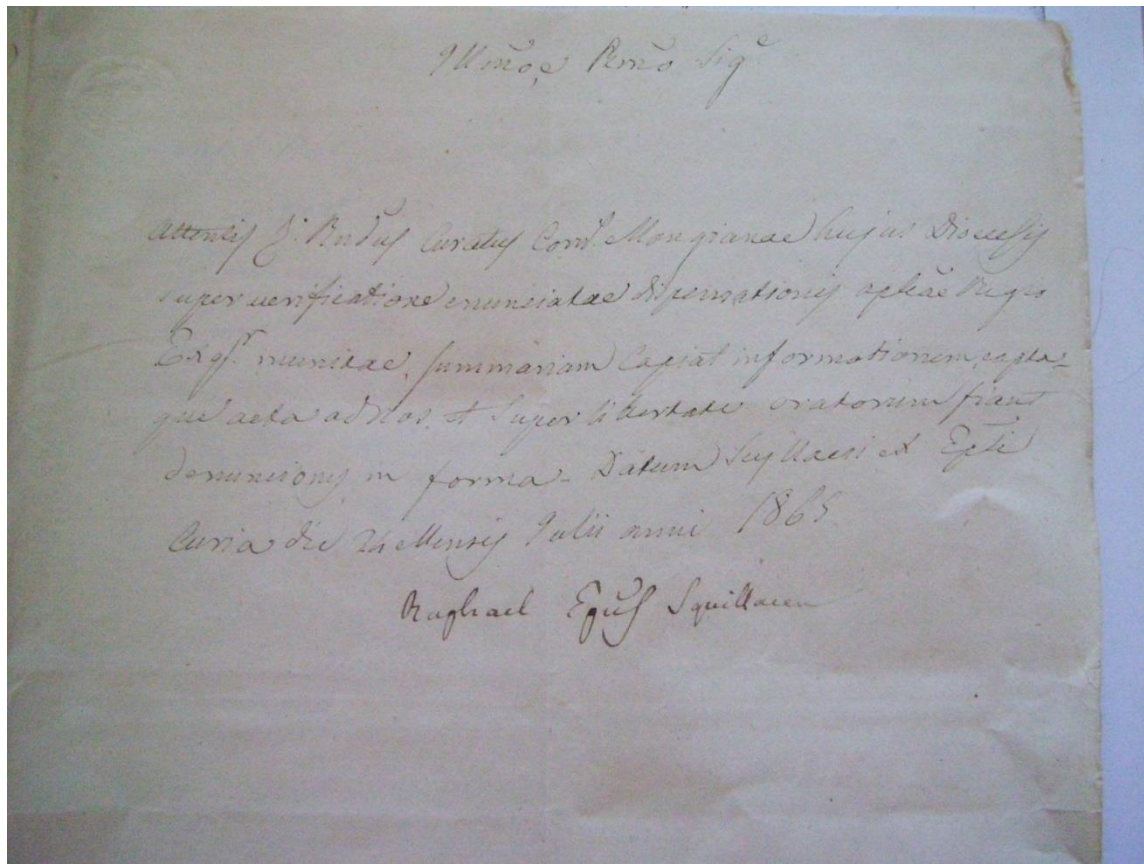 Illmo, e Rmo Sigre
Attentis Rndus Curatus Mongianae hujus Diocesis
super verificatione enunciatae dispensationis aplicae Regio
Exqr. munitae, summariam capiat informationem, capta-
que acta ad nos, et super libertate oratorum fiant
denunciones in forma - Datum Scyllacii ex Epli
Curia die 24 Mensis Julii anni 1865
Raphael Epus Squillacen